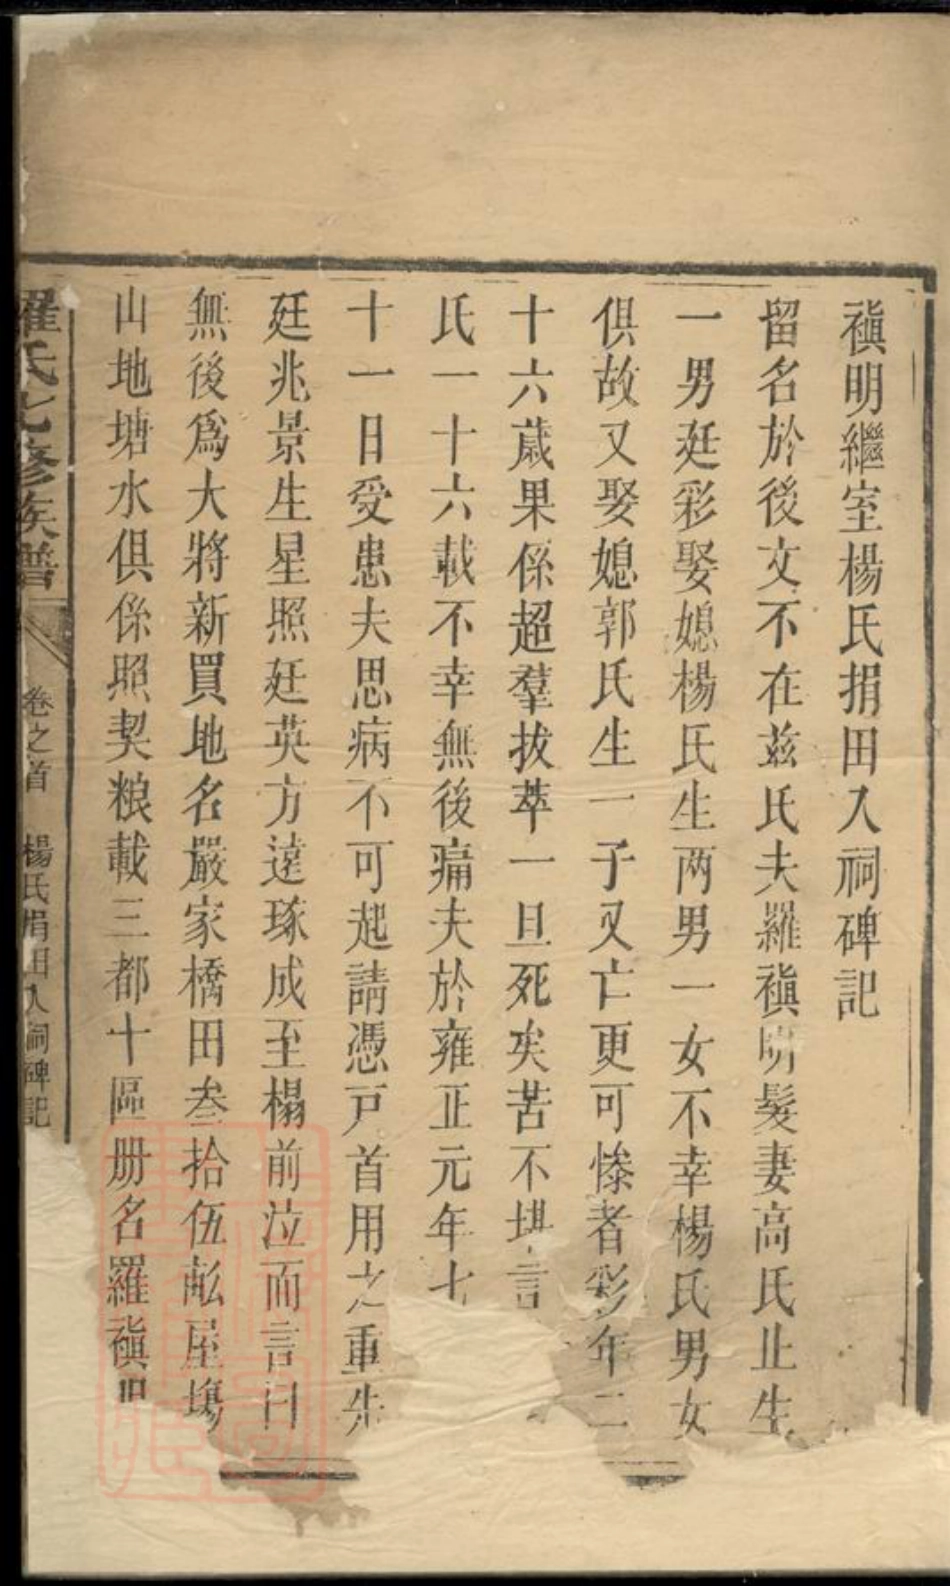 禛明繼室楊氏捐田入祠碑記
留名於後文不在茲氏夫羅禛明髮妻高氏止生
一男廷彩娶媳楊氏生两男一女不幸楊氏男女
俱故又娶媳郭氏生一子又亡更可慘者彩年二
十六歲果係超羣拔萃一旦死矣苦不堪言
氏一十六載不幸無後痛夫於雍正元年七
十一日受患夫思病不可起請憑戸首用之重先
廷兆景生星照廷英方達琢成至榻前泣而言曰
無後爲大將新買地名嚴家橋田叁拾伍畝屋塲
山地塘水俱係照契粮載三都十區册名羅禛
羅氏七修族譜
卷之首 楊氏捐田入祠碑記